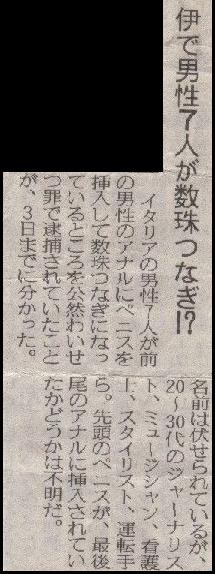 伊で男性7人が数珠つなぎ!?
イタリアの男性7人が前
の男性のアナルにペニスを
挿入して数珠つなぎになっ
ているところを公然わいせ
つ罪で逮捕されていたこと
が、3日までに分かった。
名前は伏せられているが、
20〜30代のジャーナリス
ト、ミュージシャン、看護
士、スタイリスト、運転手
ら。先頭のペニスが、最後
尾のアナルに挿入されてい
たかどうかは不明だ。